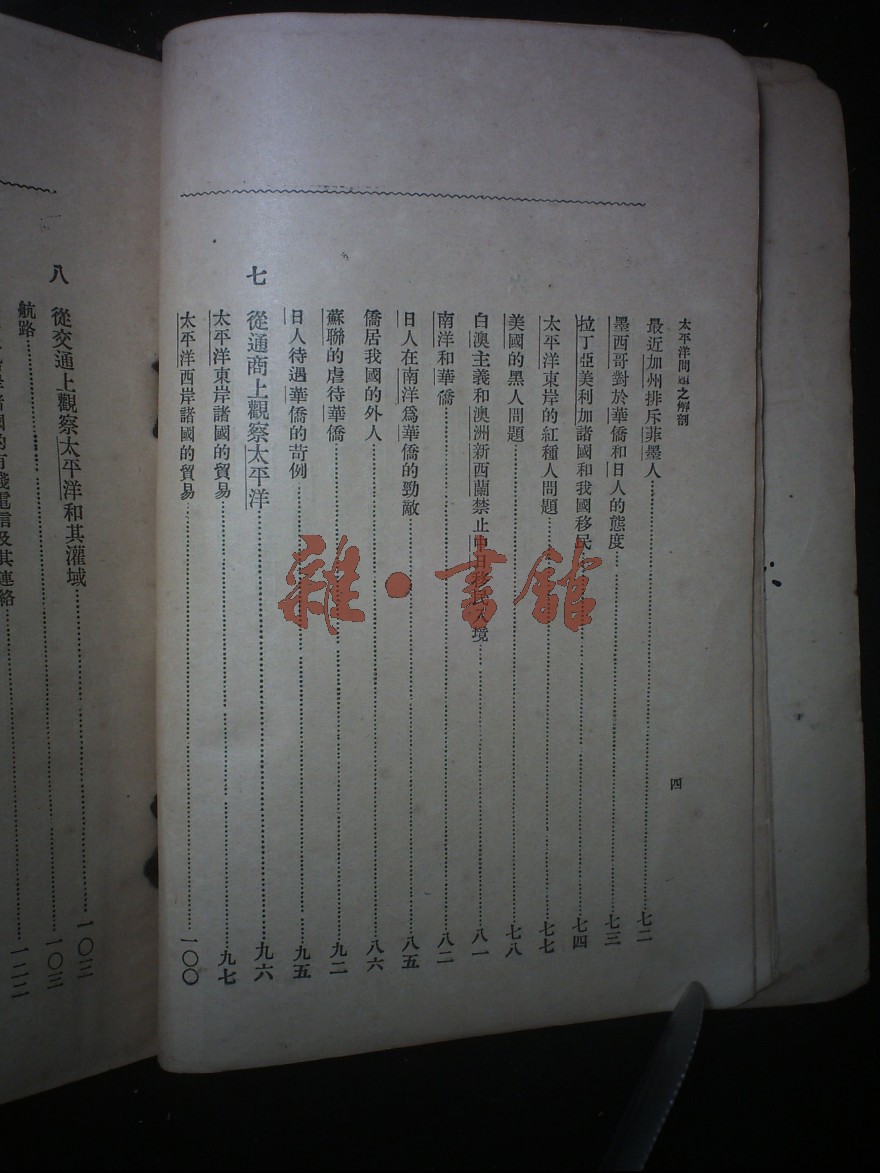 太平洋問題之解剖
四
最近加州排斥菲墨人……七二
墨西哥對於華僑和日人的態度……七三
拉丁亞美利加諸國和我國移民……七四
太平洋東岸的紅種人問題……七七
美國的黑人問題……七八
白澳主義和澳洲新西蘭禁止中日移民入境……八一
南洋和華僑……八二
日人在南洋爲華僑的勁敵……八五
僑居我國的外人……八六
蘇聯的虐待華僑……九二
日人待遇華僑的苛例……九五
七 從通商上觀察太平洋……九六
太平洋東岸諸國的貿易……九七
太平洋西岸諸國的貿易……一〇〇
八 從交通上觀察太平洋和其灌域……一〇三
航路……一〇三
諸國的有綫電信及其連絡……一二二
雜·書館